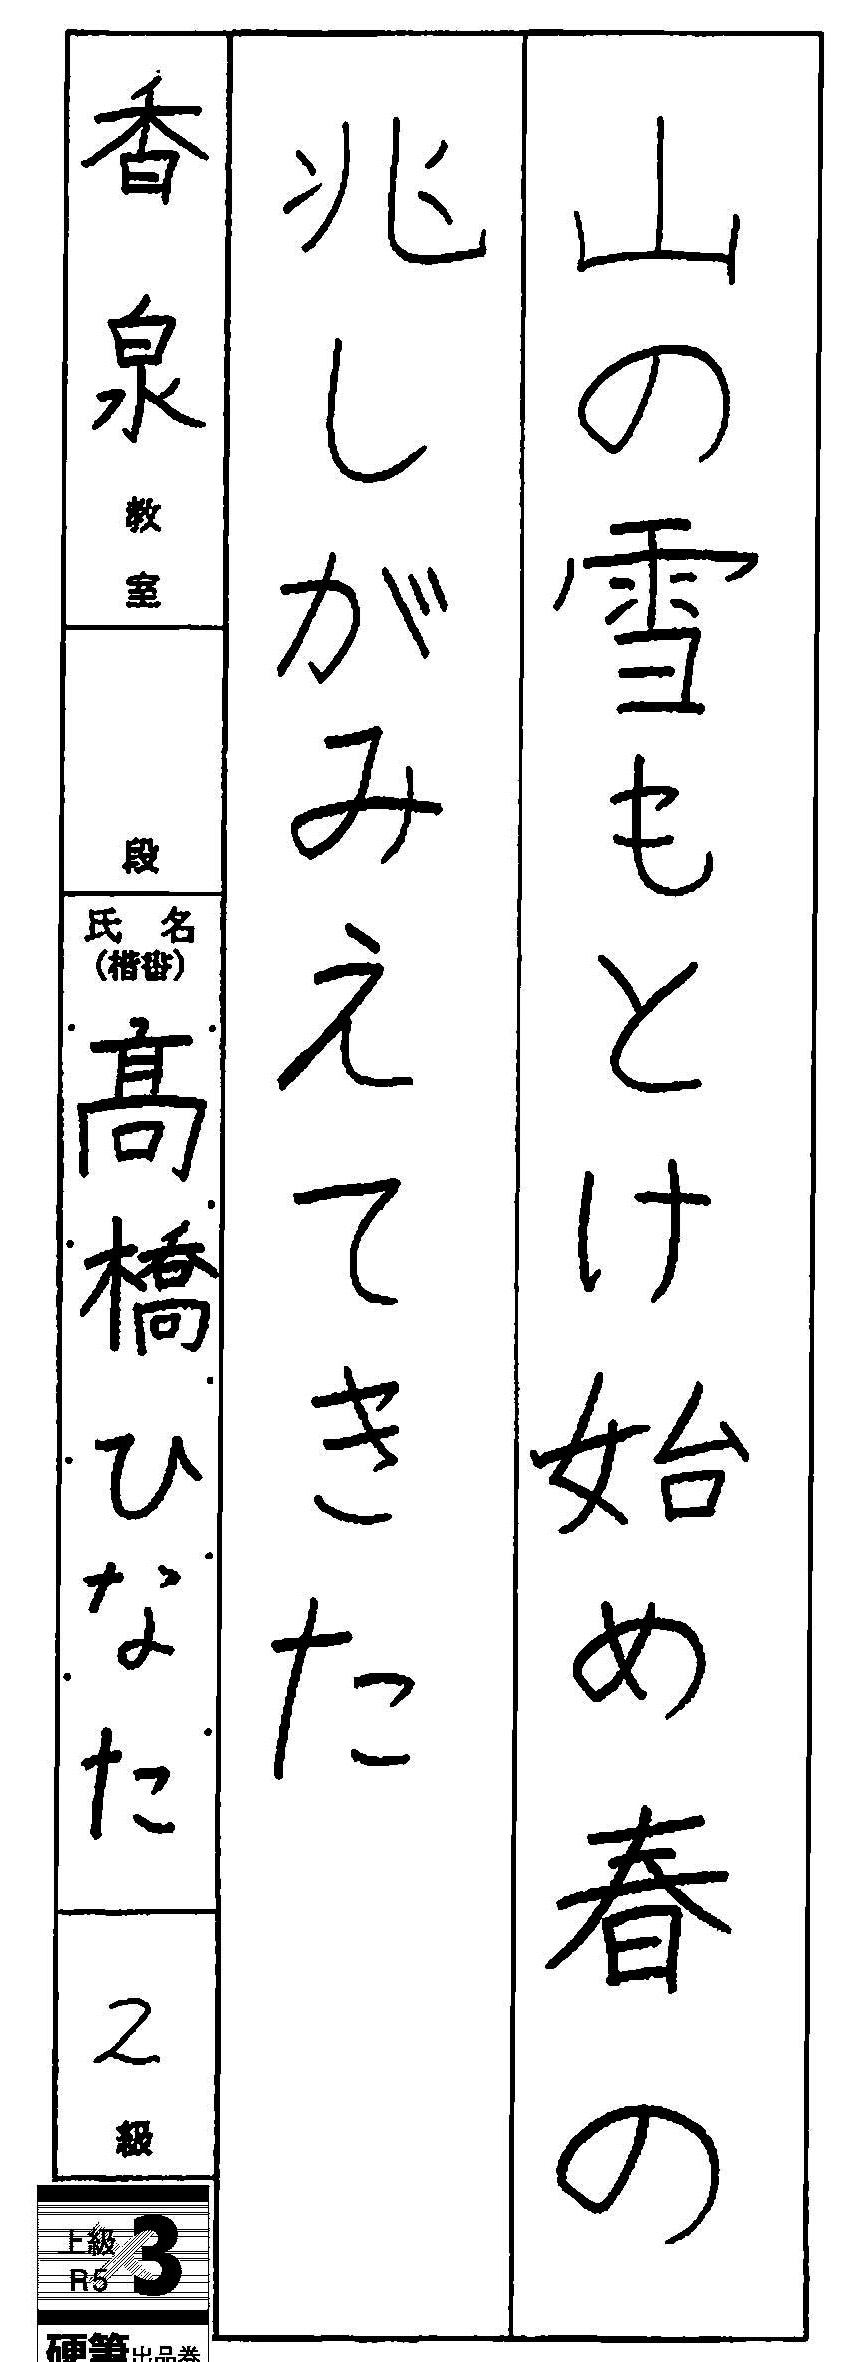 山の雪もとけ始め春の
兆しがみえてきた
香泉教室
段
氏名
(楷書)
髙橋ひなた
2級
上級
R5
3
硬筆出品券